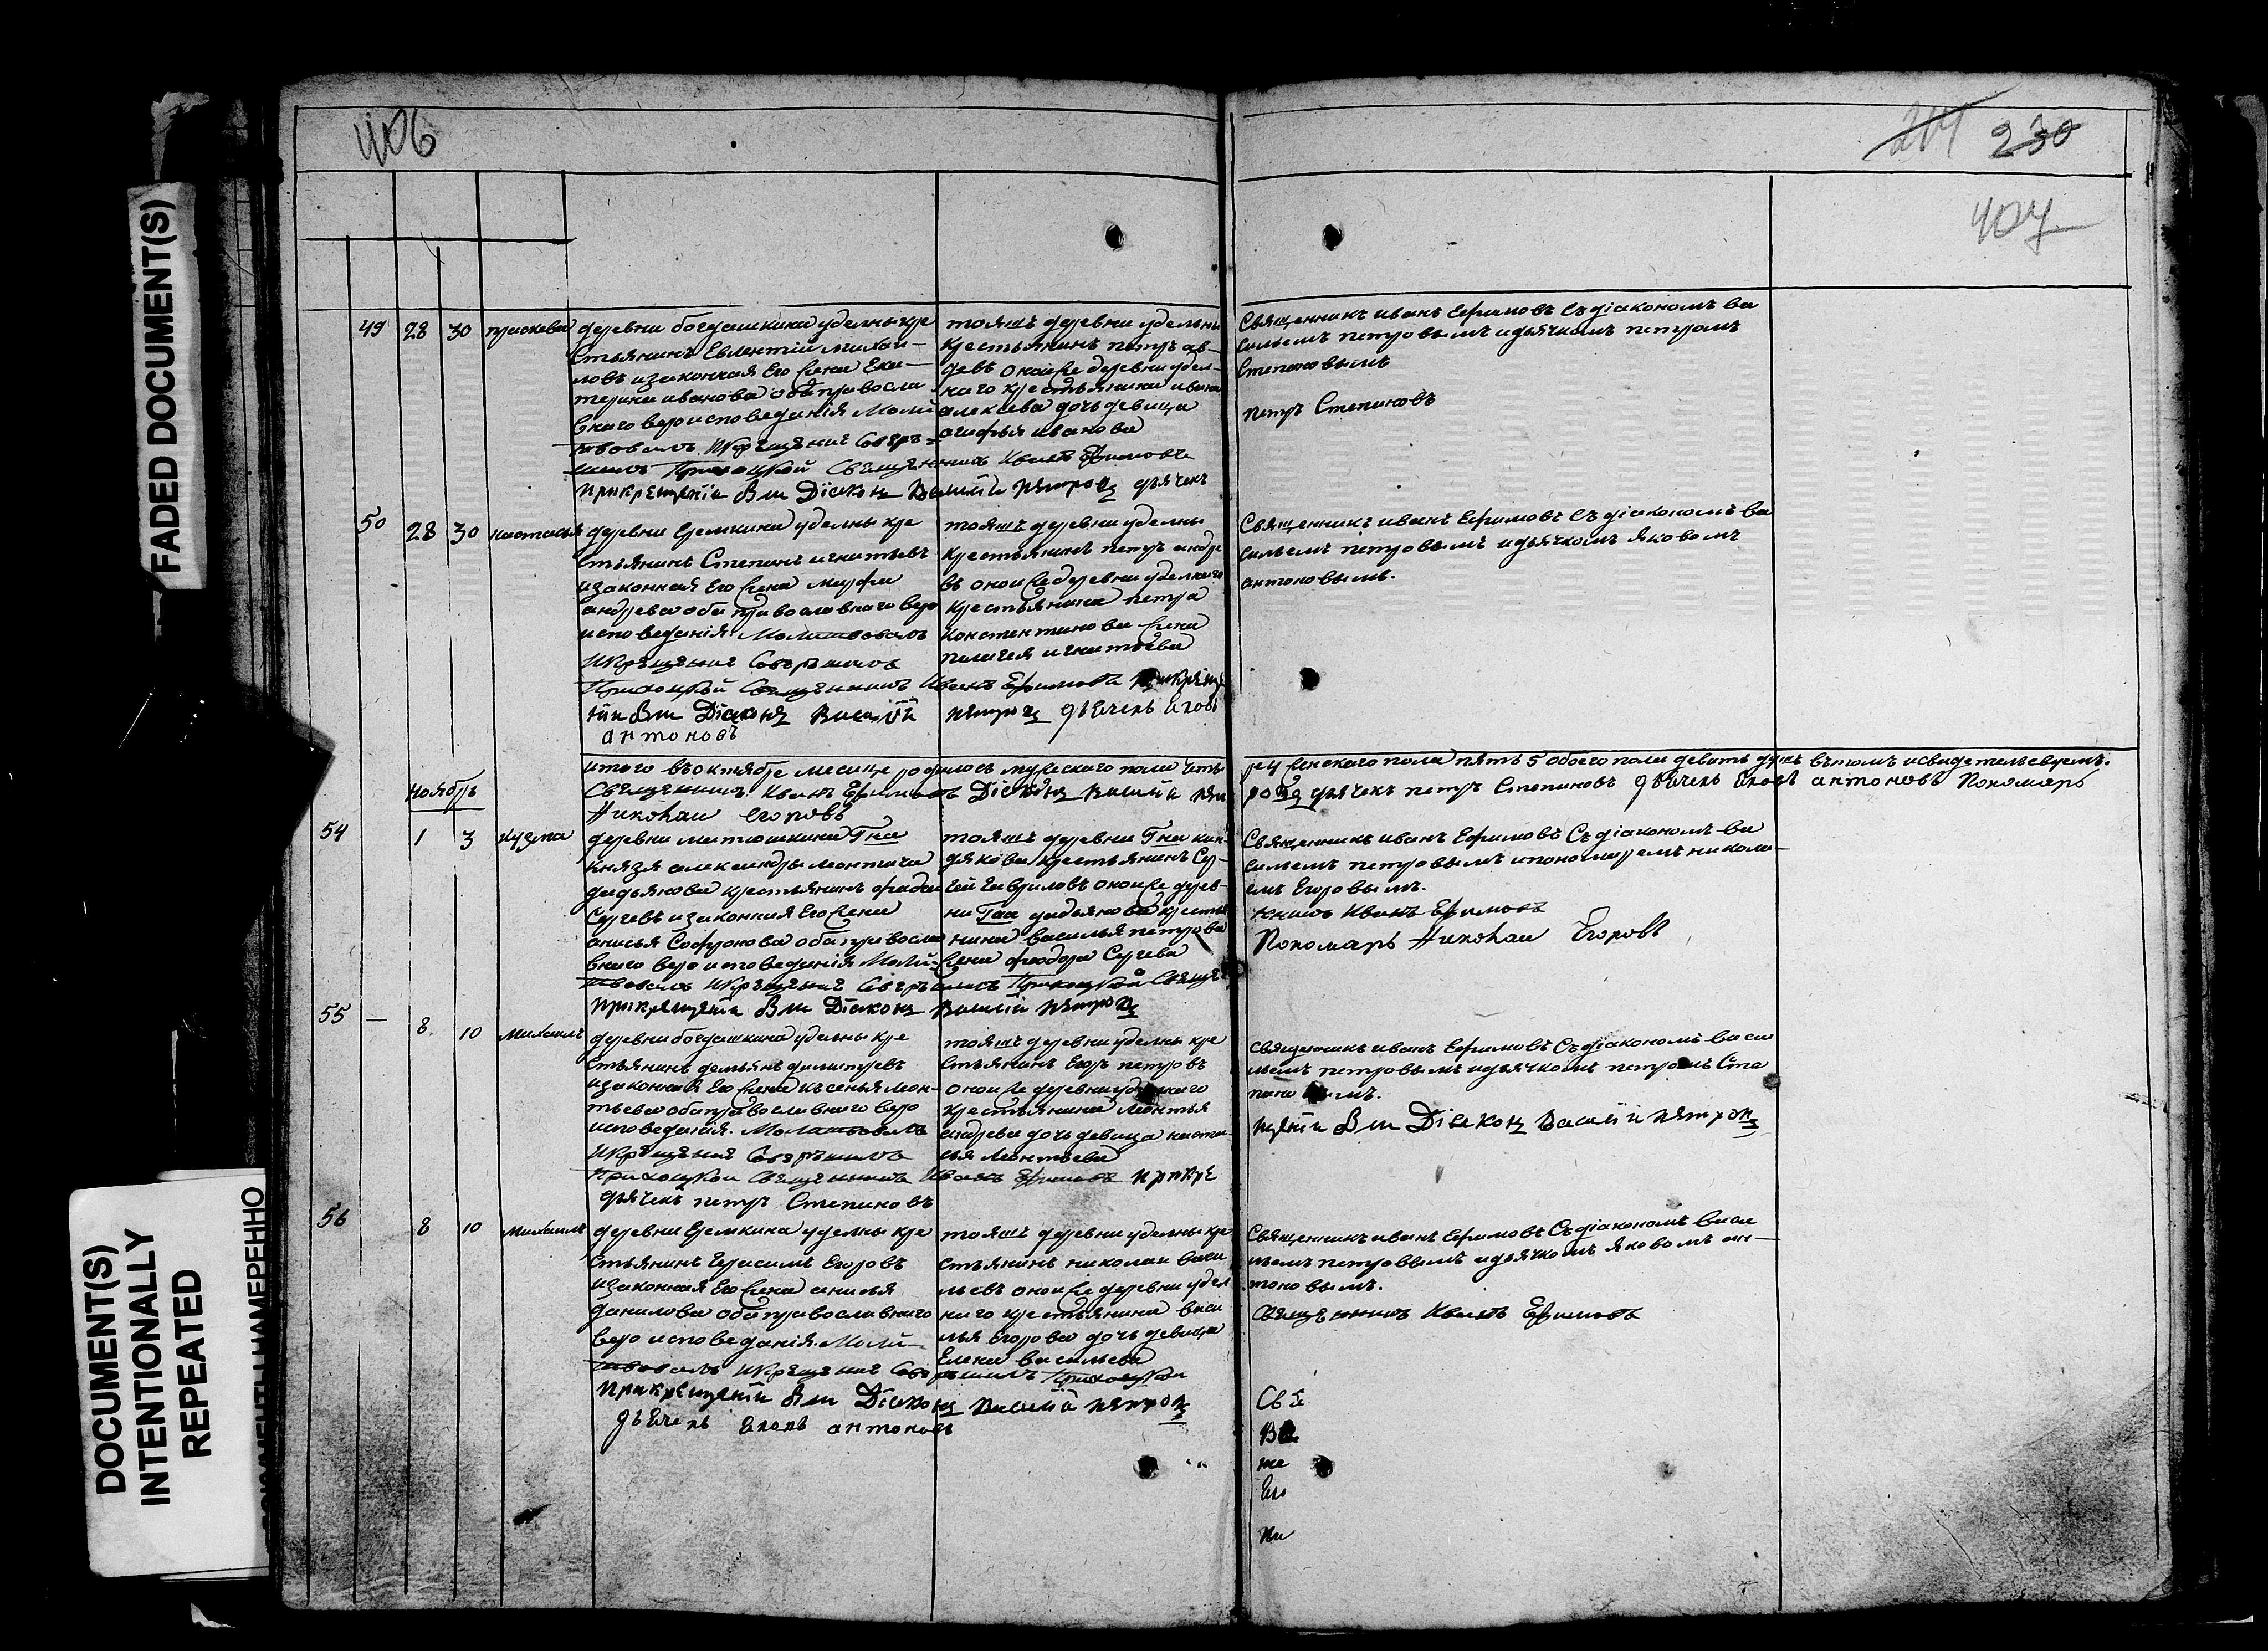 406
204 230
407
FADED DOCUMENT(S)
DOCUMENT(S)
INTENTIONALLY
REPEATED
49 28 30 праскевa
деревни богдашкина уделны кре
стьянинъ Евлентий михаи-
ловъ изаконная Его жена Ека-
терина иванова оба правосла
внаго вероисповеданія Моли
твовалъ Икрещение Совер-
шилъ Приходской Священникъ Иванъ Ефимовъ
Прикрещеніи Был Діаконъ Василій Петровъ дьячекъ
тояжъ деревни уделны
крестьянинъ петръ ав-
деевъ оноиже деревни удел-
наго крестьянина ивана
алексева дочь девица
агафья иванова
Священникъ иванъ Ефимовъ Съ діакономъ ва
сильемъ петровымъ идьячкомъ петромъ
Степановымъ
петръ Степановъ
50 28 30 настасья
деревни Еремкина уделны кре
стьянинъ Степанъ игнатьевъ
изаконная Его жена марфа
андрева оба православнаго веро
исповеданія. Молитвовалъ
Икрещение Совершилъ
Приходской Священникъ Иванъ Ефимовъ Прикреще
ніи Был Діаконъ Василій Петровъ дьячекъ Яковъ
антоновъ
тояжъ деревни уделны
крестьянинъ петръ андре
въ оноиже деревни уделнаго
крестьянина петра
Константинова жена
палагея игнатьева
Священникъ иванъ Ефимовъ Съ діакономъ ва
сильемъ петровымъ идьячкомъ яковомъ
антоновымъ.
итого въ октябре месяце родилось мужескаго пола четы
ре 4 женскаго пола пять 5 обоего пола девять душъ въ томъ исвидетелствуемъ.
Священникъ Иванъ Ефимовъ Діаконъ Василій Пет
ровъ дьячекъ петръ Степановъ дьячекъ Яковъ антоновъ Пономарь
Николаи егоровъ
Ноябрь
54 1 3 кузма
деревни матюшкина Гна
князя александры леонтича
дадьянова крестьянинъ фадеи
Сергевъ изаконная Его жена
анисья Софронова оба правосла
внаго вероисповеданія Моли-
твовалъ Икрещение Совершилъ Приходской Свяще
Прикрещеніи Был Діаконъ Василій Петровъ
тояжъ деревни Гна кня
дякова крестьянинъ Сер-
гей гавриловъ оноиже дерев-
ни Гна дадьянова крестья
нина василья петрова
жена феодора Сергева
Священникъ иванъ Ефимовъ Съ діакономъ ва
сильемъ петровымъ ипономаремъ никола-
емъ Егоровымъ.
нникъ Иванъ Ефимовъ
Пономарь Николаи Егоровъ
55 — 8 10 Михаилъ
деревни богдашкина уделны кре
стьянинъ демьянъ филиповъ
изаконная Его жена ксенья леон-
тьева оба православнаго веро
исповеданія. Молитвовалъ
Икрещение Совершилъ
Приходской Священникъ Иванъ Ефимовъ прикре
дьячекъ петръ Степановъ
тояжъ деревни уделны кре
стьянинъ Егоръ петровъ
оноиже деревни уделнаго
крестьянина леонтья
андрева дочь девица наста
сья леонтьева
священникъ иванъ Ефимовъ Съ діакономъ васи
льемъ петровымъ идьячкомъ петромъ Сте
пановымъ.
щеніи Был Діаконъ Василій Петровъ
56 8 10 Михаилъ
деревни Еремкина уделны кре
стьянинъ Герасимъ Егоровъ
изаконная Его жена анисья
данилова оба православнаго
веро исповеданія. Моли-
твовалъ Икрещение Совершилъ Приходской
Прикрещеніи Был Діаконъ Василій Петровъ
дьячекъ Яковъ антоновъ
тояжъ деревни уделны кре
стьянинъ николаи васи
льевъ оноиже деревни удел
наго крестьянина васи
лья егорова дочь девица
Елена васильева
Священникъ иванъ Ефимовъ Съ діакономъ васи
льемъ петровымъ идьячкомъ яковомъ ан-
тоновымъ.
Священникъ Иванъ Ефимовъ
Свя
Ва
те
Его